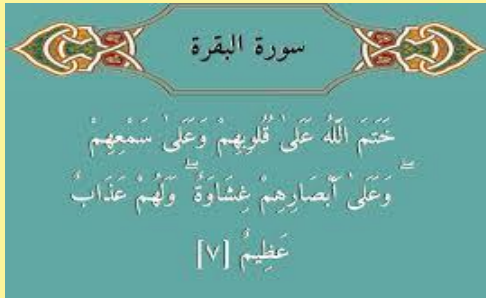 سورة البقرة
خَتَمَ اللَّهُ عَلَىٰ قُلُوبِهِمْ وَعَلَىٰ سَمْعِهِمْ
ۖ وَعَلَىٰ أَبْصَارِهِمْ غِشَاوَةٌ ۖ وَلَهُمْ عَذَابٌ
عَظِيمٌ [٧]